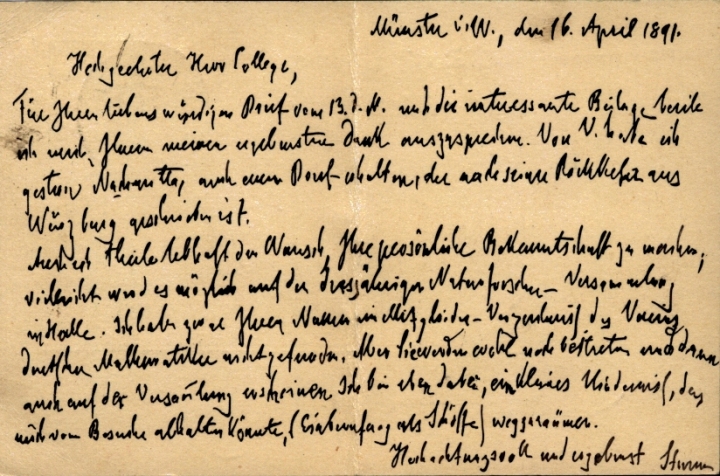 Münster i. W., den 16. April 1891.
Hochgeehrter Herr College,
Für Ihren liebenswürdigen Brief vom 13. d. M. und die interessante Beilage beeile
ich mich, Ihnen meinen ergebensten Dank auszusprechen. Von V. habe ich
gestern Nachmittag auch einen Brief erhalten, der nach seiner Rückkehr aus
Würzburg geschrieben ist.
Auch ich theile lebhaft den Wunsch, Ihre persönliche Bekanntschaft zu machen;
vielleicht wird es möglich auf der diesjährigen Naturforscher-Versammlung
in Halle. Ich habe zwar Ihren Namen im Mitglieder-Verzeichniß des Vereins
deutscher Mathematiker nicht gefunden. Aber Sie werden wohl noch beitreten und dann
auch auf der Versammlung erscheinen. Ich bin eben dabei, ein kleines Hinderniß, das
mich vom Besuche abhalten könnte, (Einberufung als Schöffe) wegzuräumen.
Hochachtungsvoll und ergebenst Sturm